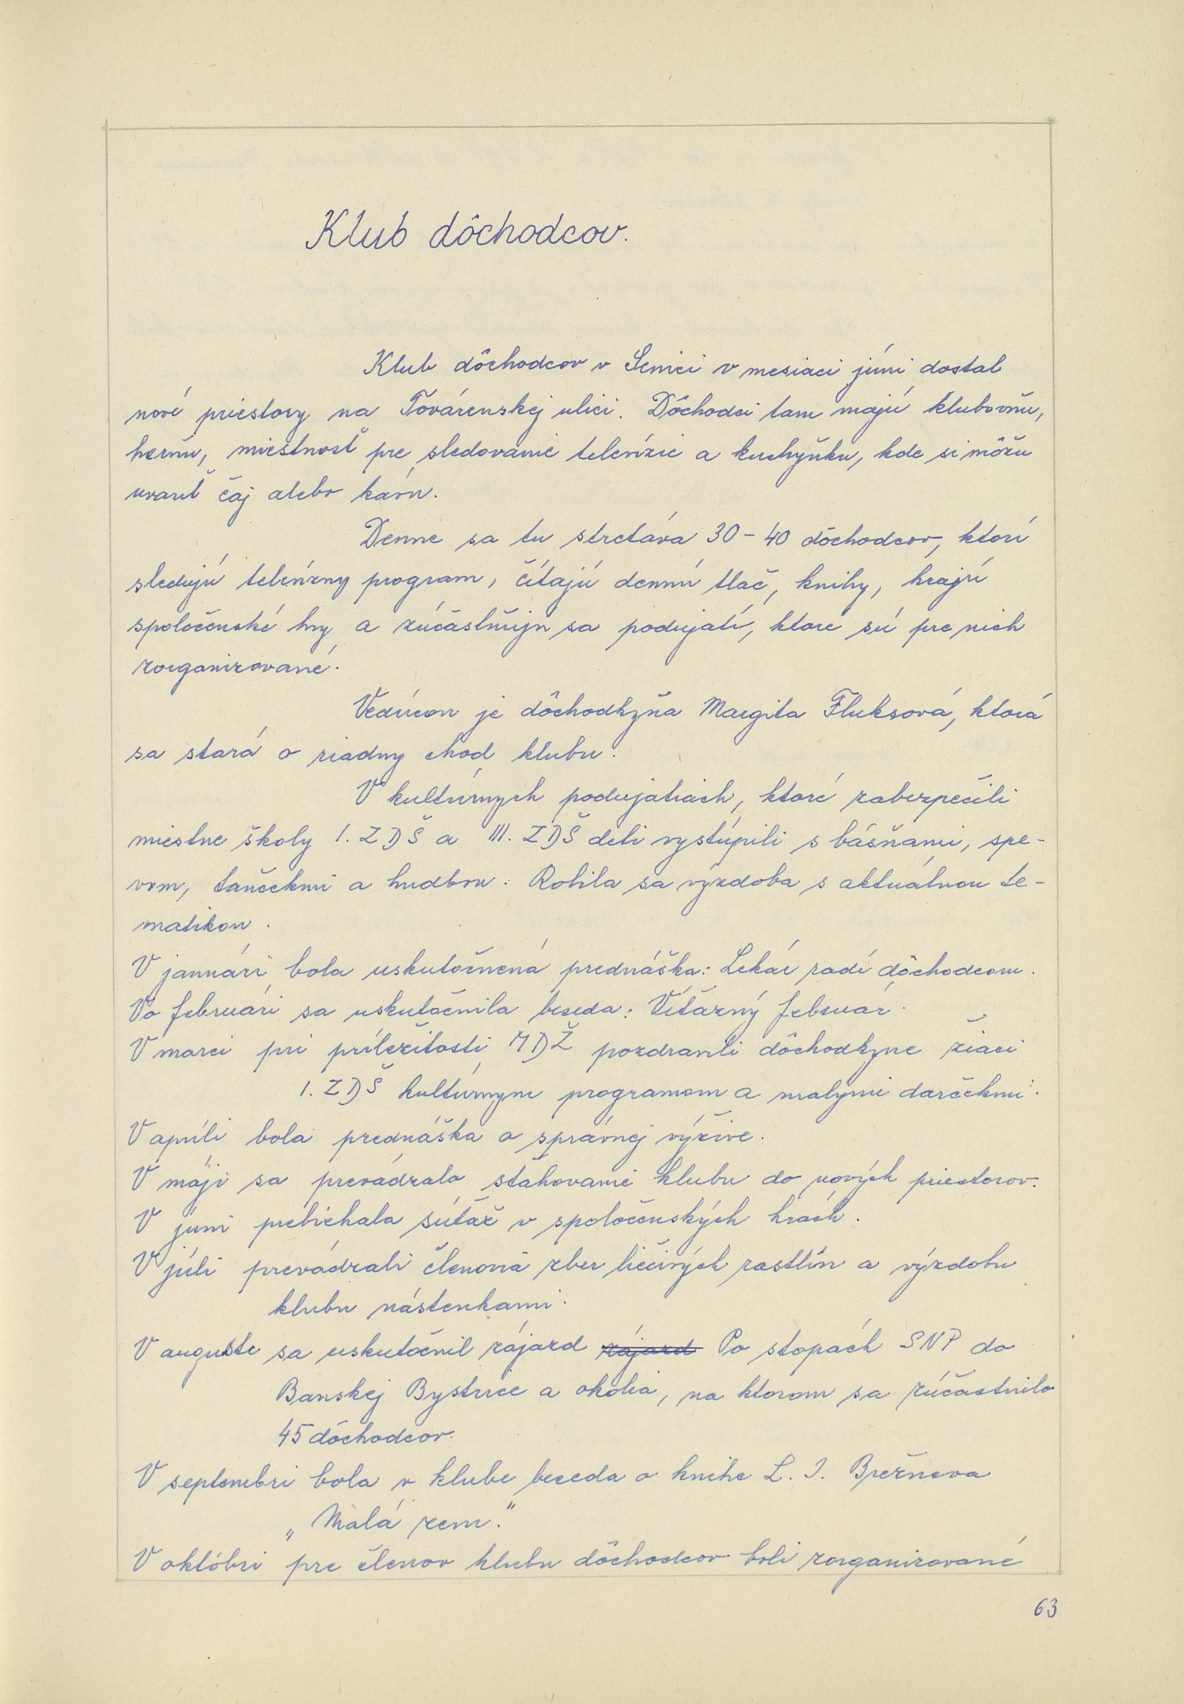 Klub dôchodcov.
Klub dôchodcov v Senici v mesiaci júni dostal
nové priestory na Továrenskej ulici. Dôchodci tam majú klubovňu,
herňu, miestnosť pre sledovanie televízie a kuchyňku, kde si môžu
uvariť čaj alebo kávu.
Denne sa tu stretáva 30-40 dôchodcov, ktorí
sledujú televízny program, čítajú dennú tlač, knihy, hrajú
spoločenské hry a zúčastňujú sa podujatí, ktoré sú pre nich
zorganizované.
Vedúcou je dôchodkyňa Margita Fluksová, ktorá
sa stará o riadny chod klubu.
V kultúrnych podujatiach, ktoré zabezpečili
miestne školy I. ZDŠ a III. ZDŠ deti vystúpili s básňami, spe-
vom, tančekmi a hudbou. Robila sa výzdoba s aktuálnou te-
matikou.
V januári bola uskutočnená prednáška: Lekár radí dôchodcom.
Vo februári sa uskutočnila beseda: Víťazný február.
V marci pri príležitosti MDŽ pozdravili dôchodkyne žiaci
I. ZDŠ kultúrnym programom a malými darčekmi.
V apríli bola prednáška o správnej výžive.
V máji sa prevádzalo sťahovanie klubu do nových priestorov.
V júni prebiehala súťaž v spoločenských hrách.
V júli prevádzali členovia zber liečivých rastlín a výzdobu
klubu nástenkami.
V auguste sa uskutočnil zájazd zájazd Po stopách SNP do
Banskej Bystrice a okolia, na ktorom sa zúčastnilo
45 dôchodcov.
V septembri bola v klube beseda o knihe L. I. Brežneva
„Malá zem."
V októbri pre členov klubu dôchodcov boli zorganizované
63